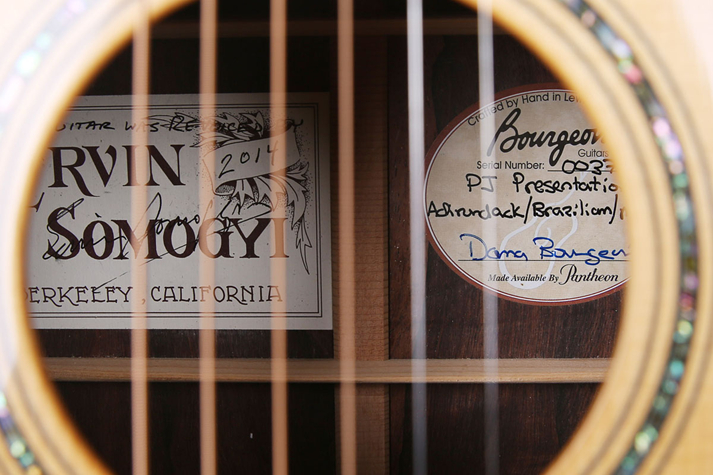 GUITAR WAS REVOICED BY
RVIN
2014
SÒMOGYI
BERKELEY, CALIFORNIA
Crafted by Hand in Lew
Bourgeoi
Guitars
Serial Number:
PJ Presentatio
Adirondack/Brazilian/
Dana Bourgeoi
Made Available By Pantheon